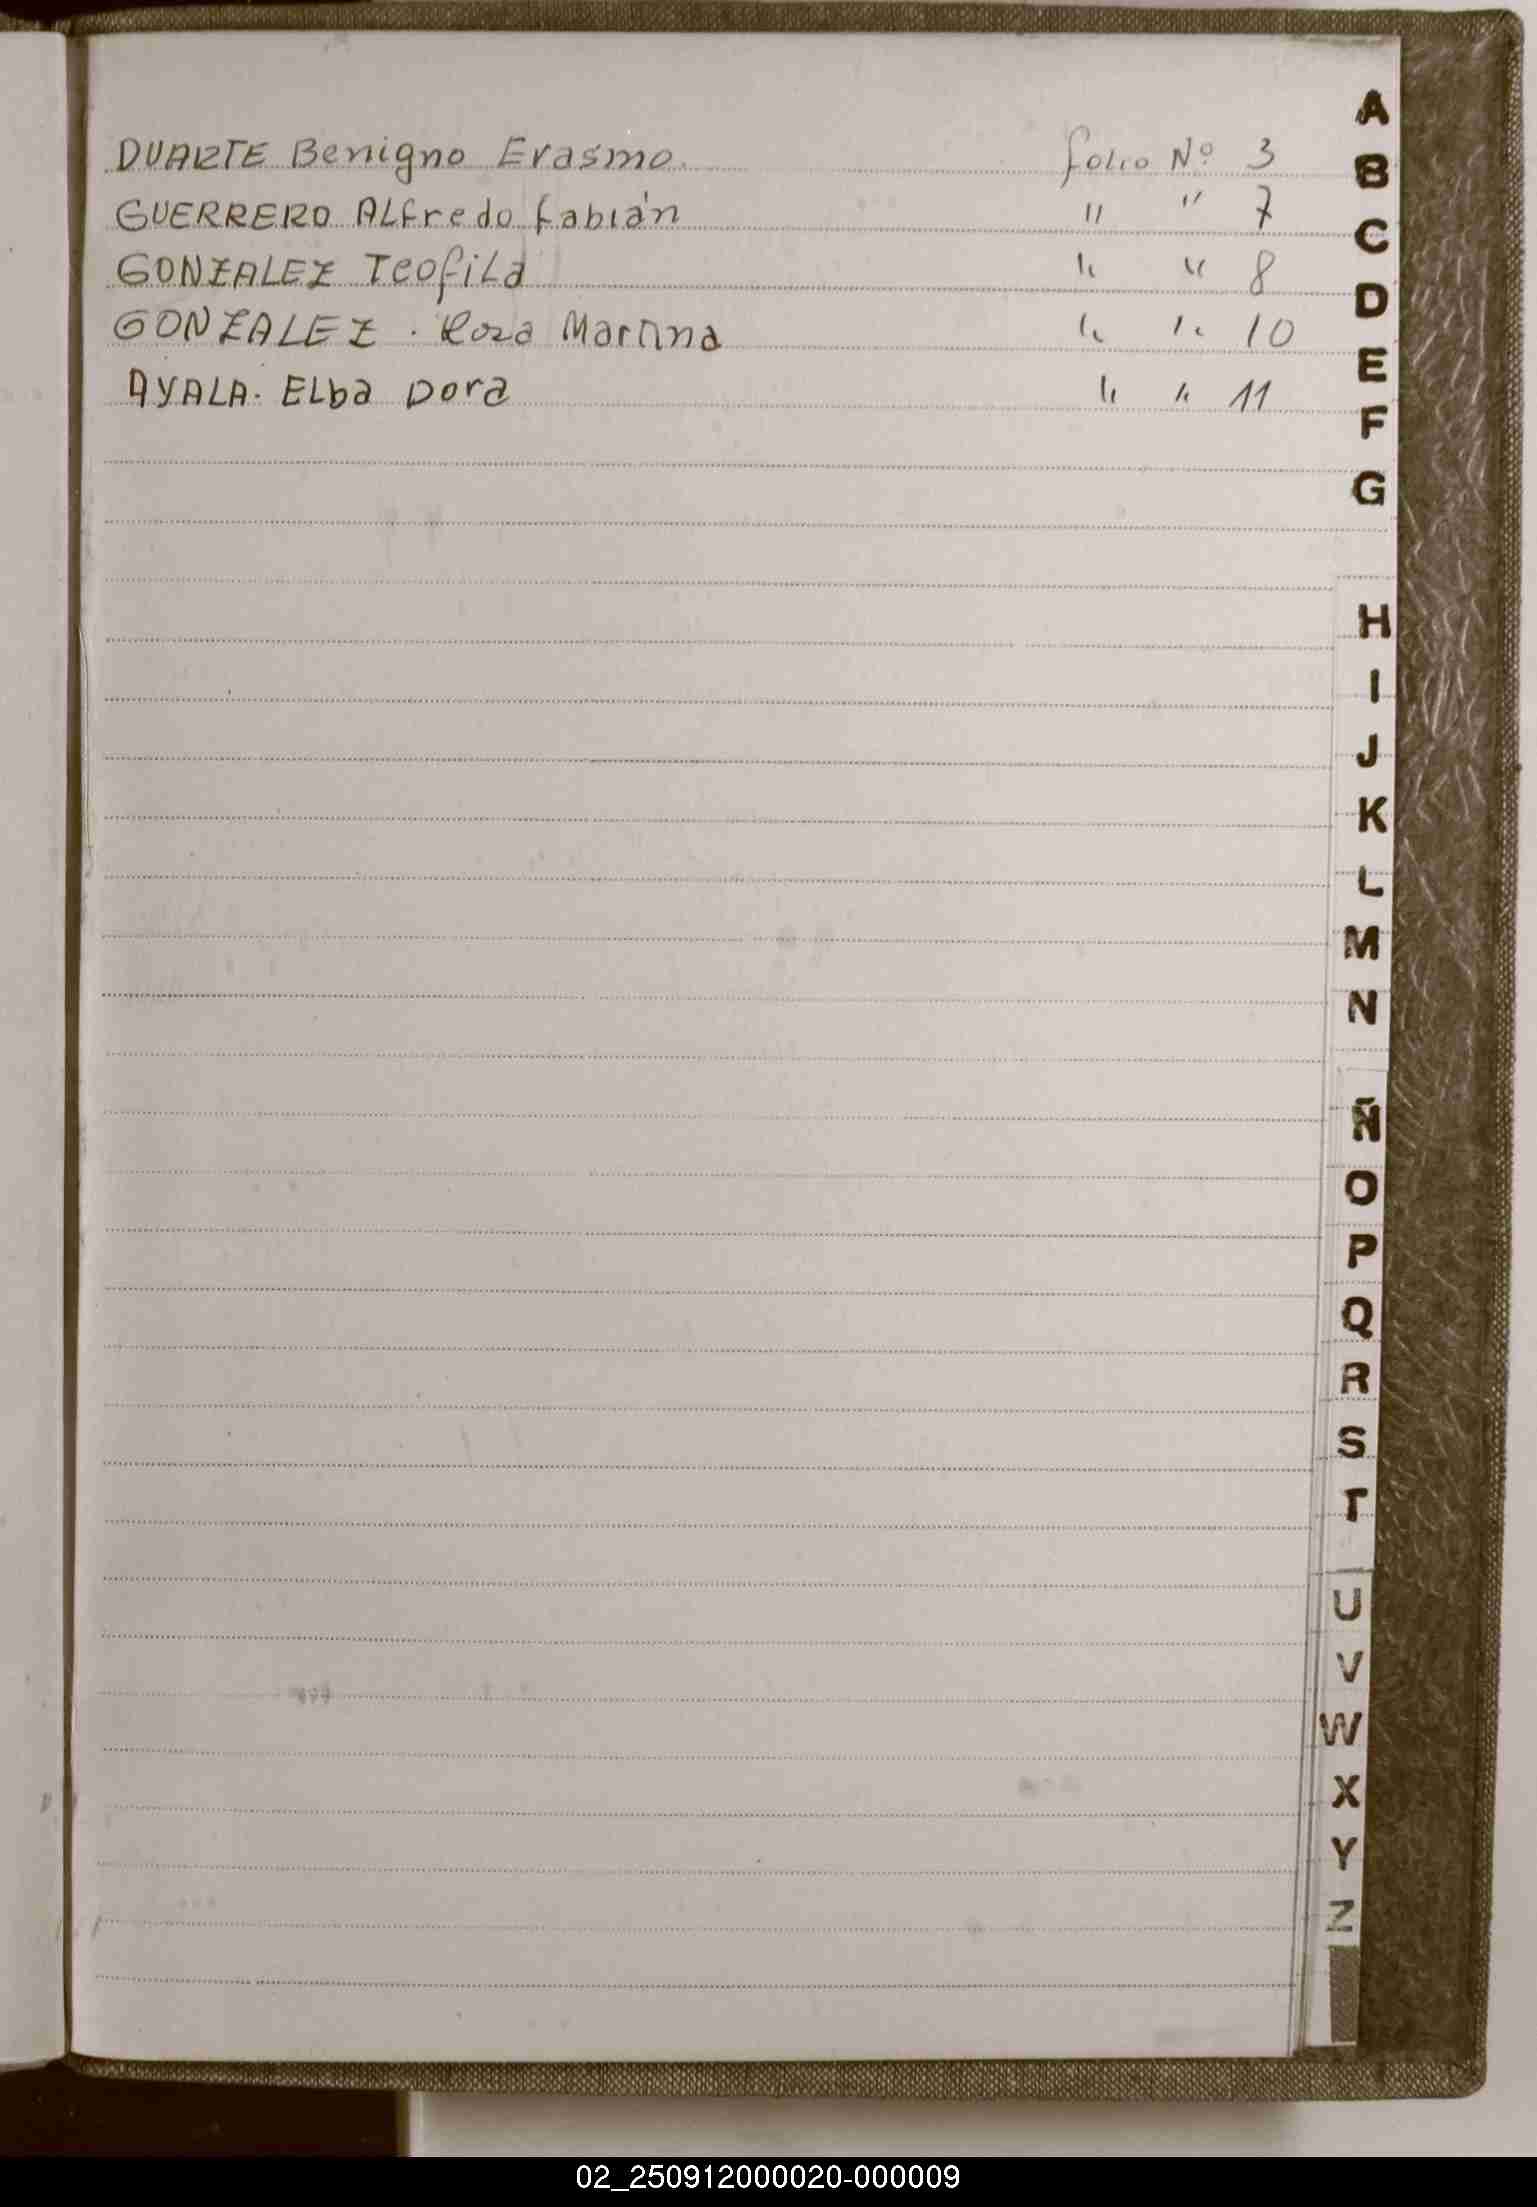 DUARTE Benigno Erasmo. folio Nº 3
GUERRERO ALfredo fabián " " 7
GONZALEZ TeofiLa " " 8
GONZALEZ . Roza Martina " " 10
AYALA. ELba Dora " " 11
A
B
C
D
E
F
G
H
I
J
K
L
M
N
Ñ
O
P
Q
R
S
T
U
V
W
X
Y
Z
02_250912000020-000009